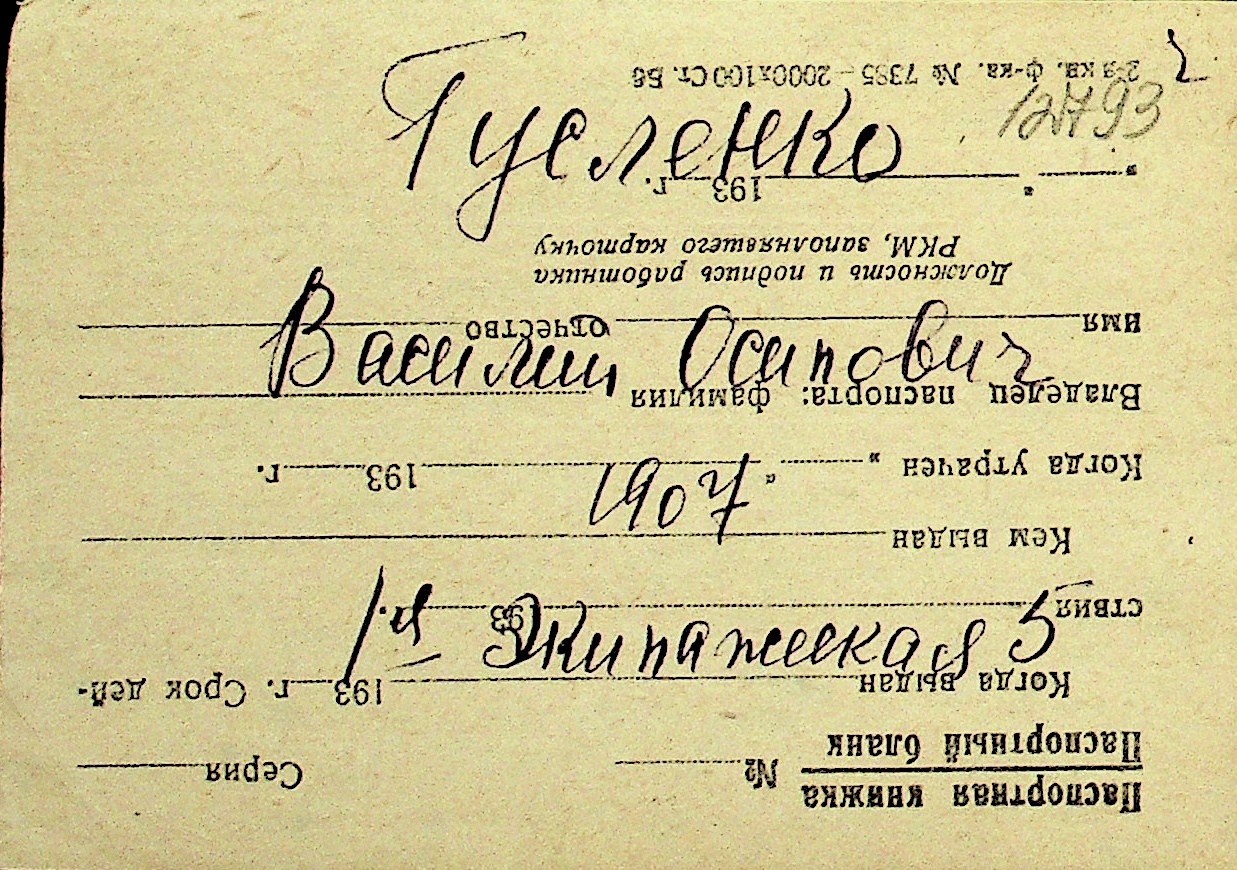 12793
Гусленко
Василий Осипович
1907
1я Экипажская 5
Паспортная книжка
Паспортный бланк
№ Серия
Когда выдан 193 г. Срок дей-
ствия 193 г.
Кем выдан
Когда утрачен „ “ 193 г.
Владелец паспорта: фамилия
имя отчество
Должность и подпись работника
РКМ, заполнявшего карточку
„ “ 193 г.
ф-ка. № 7385 – 2000х100 Ст.